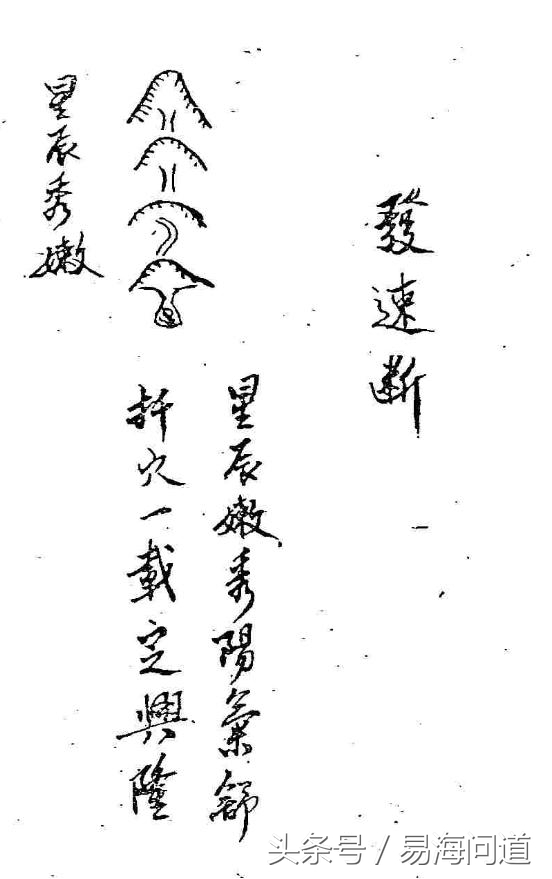 發速斷
星辰嫩秀陽氣舒
扦穴一載定興隆
星辰秀嫩
头条号 / 易海问道